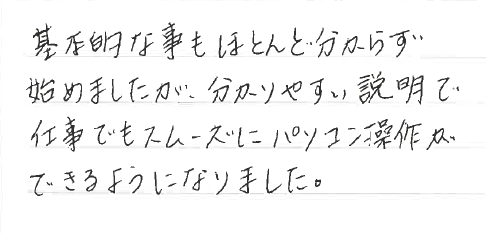 基本的な事もほとんど分からず
始めましたが、分かりやすい説明で
仕事でもスムーズにパソコン操作が
できるようになりました。